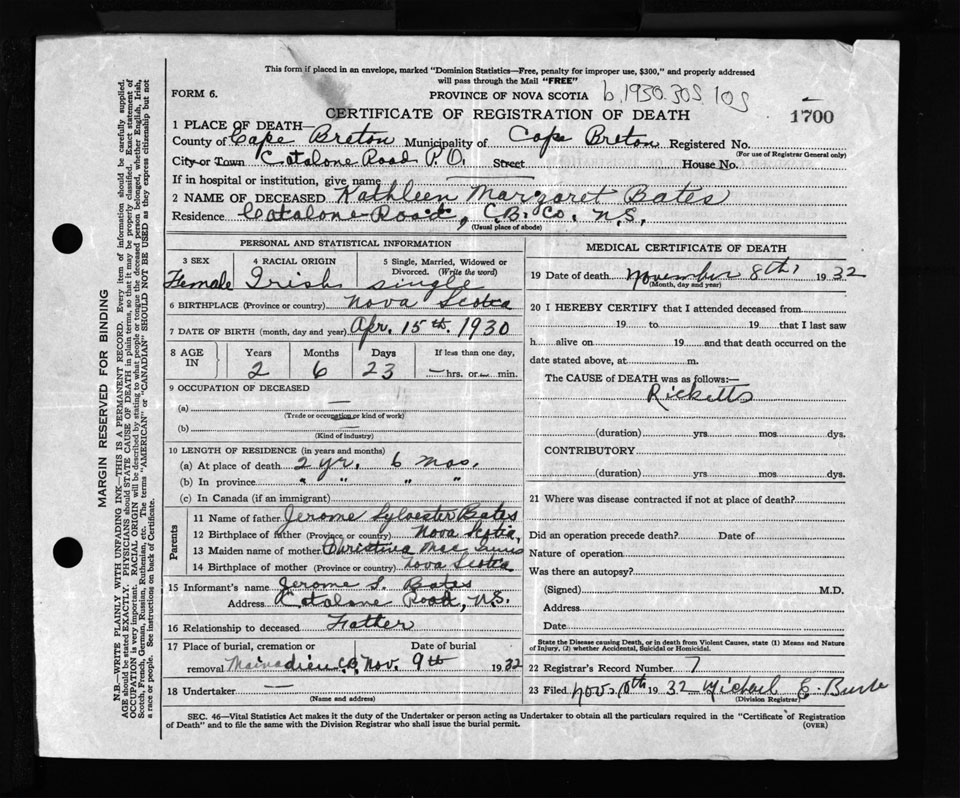 This form if placed in an envelope, marked "Dominion Statistics—Free, penalty for improper use, $300," and properly addressed
will pass through the Mail "FREE"
FORM 6.
PROVINCE OF NOVA SCOTIA b.1930.305.105
CERTIFICATE OF REGISTRATION OF DEATH
1700
1 PLACE OF DEATH—
County of Cape Breton Municipality of Cape Breton Registered No.
(For use of Registrar General only)
City or Town Catalone Road P.O. Street House No.
If in hospital or institution, give name
2 NAME OF DECEASED Kathleen Margaret Bates
Residence Catalone Road, C.B. Co. N.S.
(Usual place of abode)
PERSONAL AND STATISTICAL INFORMATION
3 SEX 4 RACIAL ORIGIN 5 Single, Married, Widowed or Divorced. (Write the word)
Female Irish single
6 BIRTHPLACE (Province or country) Nova Scotia
7 DATE OF BIRTH (month, day and year) Apr. 15th. 1930
8 AGE IN Years Months Days If less than one day,
2 6 23 — hrs. or — min.
9 OCCUPATION OF DECEASED
(a) —
(Trade or occupation or kind of work)
(b) —
(Kind of industry)
10 LENGTH OF RESIDENCE (in years and months)
(a) At place of death 2 yr. 6 mos.
(b) In province " " " "
(c) In Canada (if an immigrant)
Parents
11 Name of father Jerome Sylvester Bates
12 Birthplace of father (Province or country) Nova Scotia,
13 Maiden name of mother Christina Mac Innis
14 Birthplace of mother (Province or country) Nova Scotia
15 Informant's name Jerome S. Bates
Address Catalone Road, N.S.
16 Relationship to deceased Father
17 Place of burial, cremation or removal Date of burial
Mainadieu C.B. Nov. 9th 1932
18 Undertaker —
(Name and address)
MEDICAL CERTIFICATE OF DEATH
19 Date of death November 8th, 1932
(Month, day and year)
20 I HEREBY CERTIFY that I attended deceased from
19 to 19 that I last saw
h alive on 19 and that death occurred on the
date stated above, at m.
The CAUSE of DEATH was as follows:—
Ricketts
(duration) yrs mos dys.
CONTRIBUTORY
(duration) yrs. mos. dys.
21 Where was disease contracted if not at place of death?
Did an operation precede death? Date of
Nature of operation
Was there an autopsy?
(Signed) M.D.
Address
Date
State the Disease causing Death, or in death from Violent Causes, state (1) Means and Nature
of Injury, (2) whether Accidental, Suicidal or Homicidal.
22 Registrar's Record Number 7
23 Filed Nov. 10th 1932 Michael E. Burke
(Division Registrar)
SEC. 46—Vital Statistics Act makes it the duty of the Undertaker or person acting as Undertaker to obtain all the particulars required in the "Certificate of Registration
of Death" and to file the same with the Division Registrar who shall issue the burial permit.
(OVER)
MARGIN RESERVED FOR BINDING
N.B.—WRITE PLAINLY WITH UNFADING INK—THIS IS A PERMANENT RECORD. Every item of information should be carefully supplied.
AGE should be stated EXACTLY. PHYSICIANS should STATE CAUSE OF DEATH in plain terms, so that it may be properly classified. Exact statement of
OCCUPATION is very important. RACIAL ORIGIN will be described by stating to what people or tongue the deceased person belonged, whether English, Irish,
Scotch, French, German, Russian, Ruthenian, etc. The terms "AMERICAN" or "CANADIAN" SHOULD NOT BE USED as they express citizenship but not
a race or people. See instructions on back of Certificate.